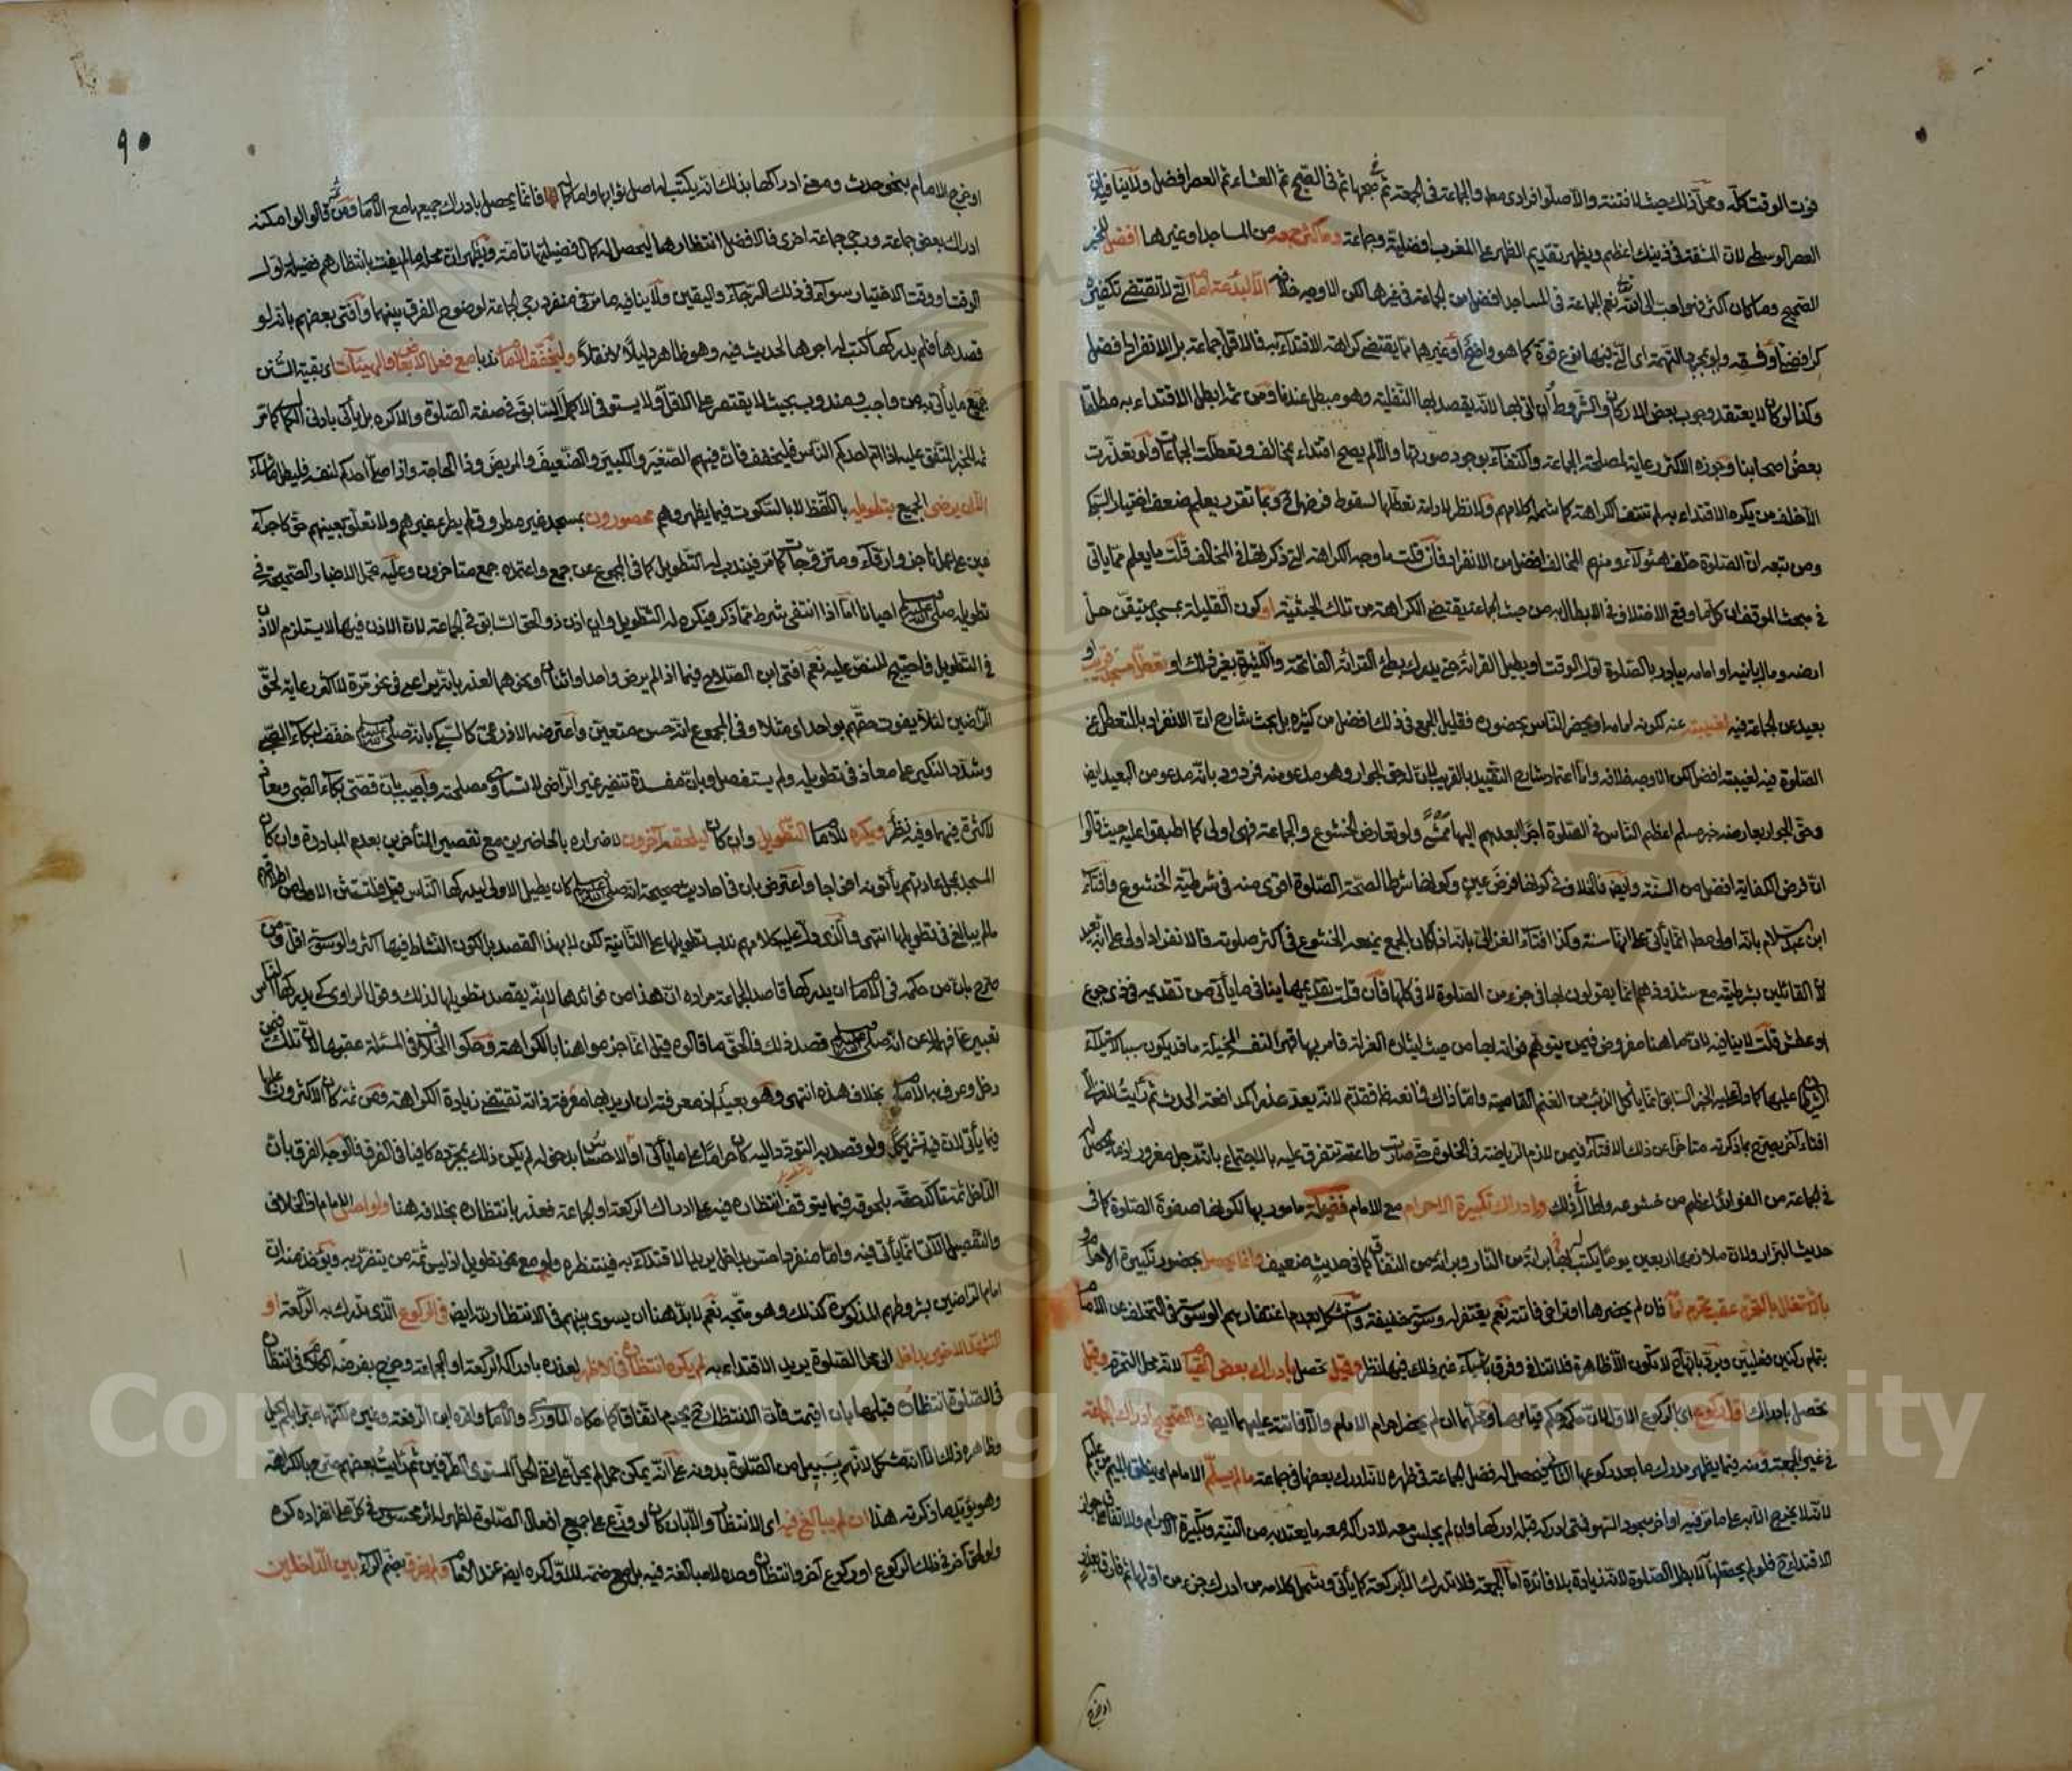 فوت الوقت كله ومحل ذلك حيث لا فتنة والا صلوا فرادى مطلقا والجماعة في الجمعة ثم صبحها ثم في الصبح ثم العشاء ثم العصر افضل ولا ينافيه ان
العصر الوسطى لان المشقة في ذينك اعظم ويظهر تقديم الظهر على المغرب افضلية وجماعة وما كثر جمعه من المساجد او غيرها افضل للخبر
الصحيح وما كان اكثر فهو احب الى الله نعم الجماعة في المساجد افضل من الجماعة في غيرها لكن الاوجه خلافه الا لبدعة امامه التي لا تقتضي تكفيره
كرافضي او فسقه ولو بمجرد التهمة اي التي فيها نوع قوة كما هو واضح او غيرها مما يقتضي كراهة الاقتداء به فالاقل جماعة بل الانفراد افضل
وكذا لو كان لا يعتقد وجوب بعض الاركان والشروط وان اتى بها لانه يقصد بها النفلية وهو مبطل عندنا ومن ثم ابطل الاقتداء به مطلقا
بعض اصحابنا وجوزه الاكثر رعاية لمصلحة الجماعة واكتفاء بوجود صورتها والا لم يصح اقتداء بمخالف وتعطلت الجماعات ولو تعذرت
الا خلف من يكره الاقتداء به لم تنتف الكراهة كما شمله كلامهم ولا نظر لادامة تعطلها لسقوط فرضها ح وبما تقرر يعلم ضعف اختيار السبكي
ومن تبعه ان الصلوة خلف هؤلاء ومنهم المخالف افضل من الانفراد فان قلت ما وجه الكراهة التي ذكرتها في المخالف قلت ما يعلم مما يأتي
في مبحث الموقف ان كل ما وقع الاختلاف في الابطال به من حيث الجماعة يقتضي الكراهة من تلك الحيثية او كون القليلة بمسجد متيقن حل
ارضه ومال بانيه او امامه يبادر بالصلوة اول الوقت او يطيل القراءة حتى يدرك بطئ القراءة الفاتحة والكثيرة بغير ذلك او تعطل مسجد قريب او
بعيد عن الجماعة فيه لغيبته عنه لكونه امامه او يحضر الناس بحضوره فقليل الجمع في ذلك افضل من كثيره بل بحث شارح ان الانفراد بالمتعطل عن
الصلوة فيه لغيبته افضل لكن الاوجه خلافه واما اعتماد شارح التقييد بالقريب لان له حق الجوار وهو مدعو منه فمردود بانه مدعو من البعيد ايض
وحق الجوار يعارضه خبر مسلم اعظم الناس في الصلوة اجرا ابعدهم اليها ممشى ولو تعارض الخشوع والجماعة فهي اولى كما اطبقوا عليه حيث قالوا
ان فرض الكفاية افضل من السنة وايض فالخلاف في كونها فرض عين وكونها شرطا لصحة الصلوة اقوى منه في شرطية الخشوع وافتاء
ابن عبد السلام بانه اولى مطلقا انما يأتي على انها سنة وكذا افتاء الغزالي بانه اذا كان الجمع يمنعه الخشوع في اكثر صلوته فالانفراد اولى على انه بعيد
لان القائلين بشرطيته مع شذوذهم انما يقولون بها في جزء من الصلوة لا في كلها فان قلت تقديمها ينافي ما يأتي من تقديمه في نحو جوع
او عطش قلت لا ينافيه لان ما هنا مفروض فيمن يتوهم فواته بها من حيث ايثار العزلة فامر بها قهرا لنفسه الخبيثة ما قد يكون سببا لاستيلاء
الشيطان عليها كما دل عليه الخبر السابق انما يأكل الذئب من الغنم القاصية واما ذاك فانه عذر فقدم لانه يعد عذرا كمدافعة الحدث ثم رأيت للغزالي
افتاء اخر يصرح بما ذكرته متأخرا عن ذلك الافتاء فيمن لازم الرياضة في الخلوة حتى صارت طاعته تتفرق عليه بالاجتماع بانه رجل مغرور اذ ما يحصل له
في الجماعة من الفوائد اعظم من خشوعه واطال في ذلك وادراك تكبيرة الاحرام مع الامام فضيلة مامور بها لكونها صفوة الصلوة كما في
حديث البزار ولان ملازمها اربعين يوما يكتب له بها براءة من النار وبراءة من النفاق كما في حديث ضعيف وانما تحصل بحضور تكبيرة الامام و
بالاشتغال بالتحرم عقب تحرم امامه فان لم يحضرها او تراخى فاتته نعم يغتفر له وسوسة خفيفة واستشكل بعدم اغتفارهم الوسوسة في التخلف عن الامام
بتمام ركنين فعليين ويرد بانها ح لا تكون الا ظاهرة فلا تنافي وفرق باشياء غير ذلك فيها نظر وقيل تحصل بادراك بعض القيام لانه محل التحرم وقيل
تحصل بادراك اول ركوع اي الركوع الاول لان حكمه حكم قيامها ومحلهما ان لم يحضر احرام الامام والا فاتته عليهما ايض والصحيح ادراك الجماعة
في غير الجمعة ومنه فيما يظهر مدرك ما بعد ركوعها الثاني فيحصل له فضل الجماعة في ظهره لانه ادرك بعضها في جماعة ما لم يسلم الامام اي ينطق بالميم من عليكم
لانه لا يخرج الا به على ما مر فيه او اخر سجود السهو فمتى ادركه قبله ادركها وان لم يجلس معه لادراكه معه ما يعتد به من النية وتكبيرة الاحرام ولاتفاقهم على جواز
الاقتداء ح فلو لم يحصلها لابطل الصلوة لانه زيادة بلا فائدة اما الجمعة فلا تدرك الا بركعة كما يأتي وشمل كلامه من ادرك جزء من اولها ثم فارق بعذر
او خرج
٩٥
او خرج الامام بنحو حدث ومعنى ادراكها بذلك انه يكتب له اصل ثوابها واما كماله فانما يحصل بادراك جميعها مع الامام ومن ثم قالوا لو امكنه
ادراك بعض جماعة ورجى جماعة اخرى فالافضل انتظارها ليحصل له كمال فضيلتها تامة ويظهر ان محله ما لم يفت بانتظارهم فضيلة اول
الوقت او وقت الاختيار سواء في ذلك الرجاء واليقين ولا ينافيه ما مر في منفرد رجى الجماعة لوضوح الفرق بينهما وافتى بعضهم بانه لو
قصدها فلم يدركها كتب له اجرها لحديث فيه وهو ظاهر دليلا لا نقلا وليخفف الامام ندبا مع فعل الابعاض والهيئات اي بقية السنن
جميع ما يأتي به من واجب ومندوب بحيث لا يقتصر على الاقل ولا يستوفي الاكمل السابق في صفة الصلوة والا كره بل يأتي بادنى الكمال كما مر
ثم للخبر المتفق عليه اذا ام احدكم الناس فليخفف فان فيهم الصغير والكبير والضعيف والمريض وذا الحاجة واذا صلى احدكم لنفسه فليطل ما شاء
الا ان يرضى الجميع بتطويله باللفظ لا بالسكوت فيما يظهر وهم محصورون بمسجد غير مطروق لم يطرء غيرهم ولا تعلق بعينهم حق كاجراء
عين على عمل ناجز وارقاء ومتزوجات كما مر فيندب له التطويل كما في المجموع عن جمع واعتمده جمع متاخرون وعليه تحمل الاخبار الصحيحة في
تطويله صلى الله عليه وسلم احيانا اما اذا انتفى شرط مما ذكر فيكره له التطويل وان اذن ذو الحق السابق في الجماعة لان الاذن فيها لا يستلزم الاذن
في التطويل فاحتيج للنص عليه نعم افتى ابن الصلاح فيما اذا لم يرض واحد او اثنان او نحوهما لعذر بانه يراعى في نحو مرة لا اكثر رعاية لحق
الراضين لئلا يفوت حقهم بواحد اي مثلا وفي المجموع انه حسن متعين واعترضه الاذرعي كالسبكي بانه صلى الله عليه وسلم خفف لبكاء الصبي
وشدد النكير على معاذ في تطويله ولم يستفصل وبان مفسدة تنفير غير الراضي لا تساوي مصلحته واجيب بان قصتي بكاء الصبي ومعاذ
لا كثرة فيهما وفيه نظر ويكره للامام التطويل وان كان ليلحقه اخرون لاضراره بالحاضرين مع تقصير المتأخرين بعدم المبادرة وان كان
المسجد بمحل عادتهم يأتونه افواجا واعترض بان في احاديث صحيحة انه صلى الله عليه وسلم كان يطيل الاولى ليدركها الناس قيل فلتستثن الاولى من اطلاقهم
ما لم يبالغ في تطويلها انتهى والذي دل عليه كلامهم ندب تطويلها على الثانية لكن لا بهذا القصد بل لكون النشاط فيها اكثر والوسوسة اقل ومن
صرح بان من حكمته في الامام ان يدركها قاصد الجماعة مراده ان هذا من فوائدها لا انه يقصد تطويلها لذلك وقول الراوي كي يدركها الناس
تعبير عما فهمه لا عن انه صلى الله عليه وسلم قصد ذلك فالحق ما قالوه قيل انما جزموا هنا بالكراهة وحكوا الخلاف في المسئلة عقبها لان تلك فيمن
دخل وعرف به الامام بخلاف هذه انتهى وهو بعيد اذ معرفته ان اريد بها معرفة ذاته تقتضي زيادة الكراهة ومن ثم كان الاكثرون عليها
فيما يأتي لان فيه تشريكا ولو قصد به التودد اليه كان حراما على ما يأتي او الاحساس بدخوله لم يكن ذلك بمجرده كافيا في الفرق فالوجه الفرق بان
الداخل ثم تتأكد حقه بلحوقه فيما يتوقف انتظاره فيه على ادراك الركعة او الجماعة فعذر بانتظاره بخلافه هنا ولو احس الامام اذ الخلاف
والتفصيل الاتي انما يأتي فيه واما منفرد احس بداخل يريد الاقتداء به فينتظره ولو مع نحو تطويل اذ ليس ثم من يتضرر به ويؤخذ منه ان
امام الراضين بشروطهم المذكورة كذلك وهو متجه نعم لا بد هنا ان يسوي بينهم في الانتظار لله ايض في الركوع الذي تدرك به الركعة او
التشهد الاخير بداخل الى محل الصلوة يريد الاقتداء به لم يكره انتظاره في الاظهر لعذره بادراكه الركعة او الجماعة وخرج بفرضه الكلام في انتظاره
في الصلوة انتظاره قبلها بان اقيمت فان الانتظار ح يحرم اتفاقا كما حكاه الماوردي والامام واقره ابن الرفعة وغيره
وظاهره ذلك الا انه مشكل لانهم بسبيل من الصلوة بدونه على انه يمكن حمل لم يحل على نفي الحل المستوى الطرفين ثم رأيت بعضهم صرح بالكراهة
وهو يؤيد ما ذكرته هذا ان لم يبالغ فيه اي الانتظار والا بان كان لو وزع على جميع افعال الصلوة لظهر له اثر محسوس في كل على انفراده كره
ولو لحق اخر في ذلك الركوع او ركوع اخر وانتظاره وحده لا مبالغة فيه بل مع ضمه للاول كره ايض عند الامام ولم يفرق بضم الراء بين الداخلين